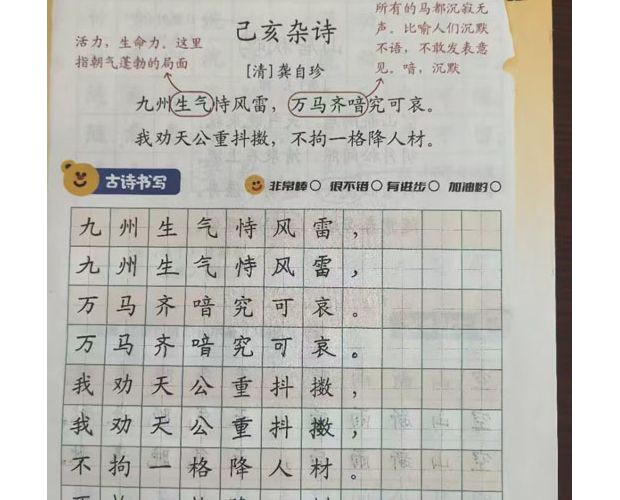 己亥杂诗
[清]龚自珍
活力，生命力。这里
指朝气蓬勃的局面
所有的马都沉寂无
声。比喻人们沉默
不语，不敢发表意
见。喑，沉默
九州生气恃风雷，万马齐喑究可哀。
我劝天公重抖擞，不拘一格降人材。
古诗书写
非常棒 很不错 有进步 加油哟
九州生气恃风雷，
九州生气恃风雷，
万马齐喑究可哀。
万马齐喑究可哀。
我劝天公重抖擞，
我劝天公重抖擞，
不拘一格降人材。